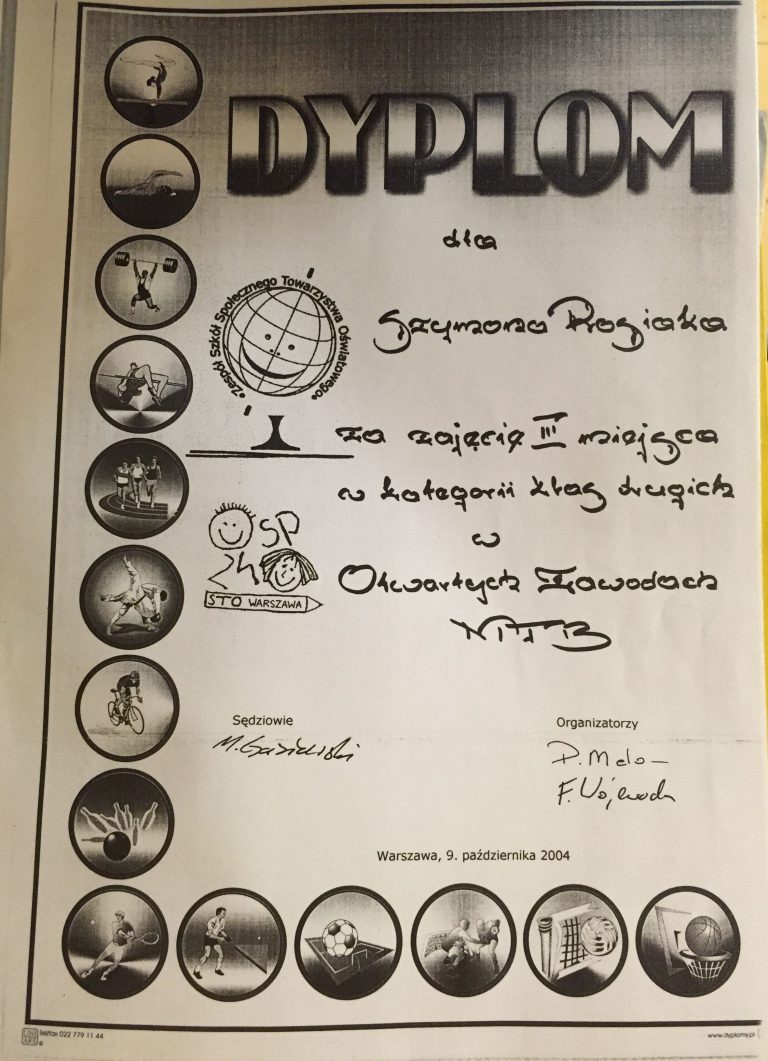 DYPLOM
dla
Zespół Szkół Społecznego Towarzystwa Oświatowego
Szymona Rogiaka
za zajęcie III miejsca
w kategorii klas drugich
w
Otwartych Zawodach
MTB
OSP
STO WARSZAWA
Sędziowie
Organizatorzy
Warszawa, 9. października 2004
Tel/fax 022 779 11 44
www.dyplomy.pl